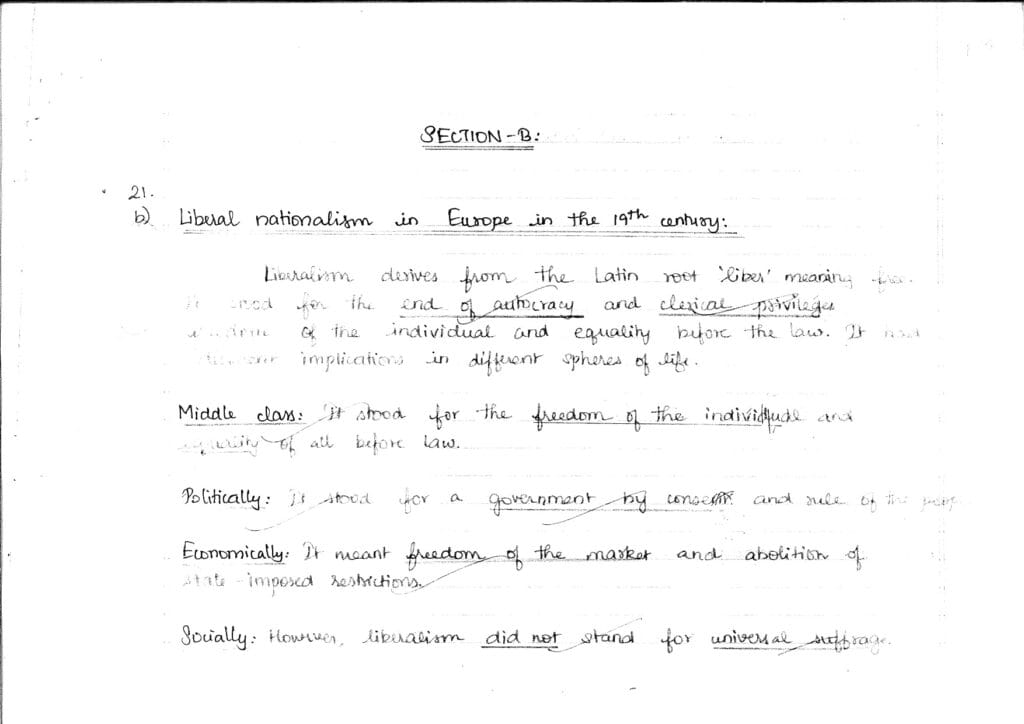 SECTION-B:
21.
b) Liberal nationalism in Europe in the 19th century:
Liberalism derives from the Latin root 'liber' meaning free.
It stood for the end of autocracy and clerical privileges
of the individual and equality before the law. It had
implications in different spheres of life.
Middle class: It stood for the freedom of the individude and
equality of all before law.
Politically: It stood for a government by consent and rule of the
Economically: It meant freedom of the market and abolition of
state-imposed restrictions.
Socially: However, liberalism did not stand for universal suffrage.